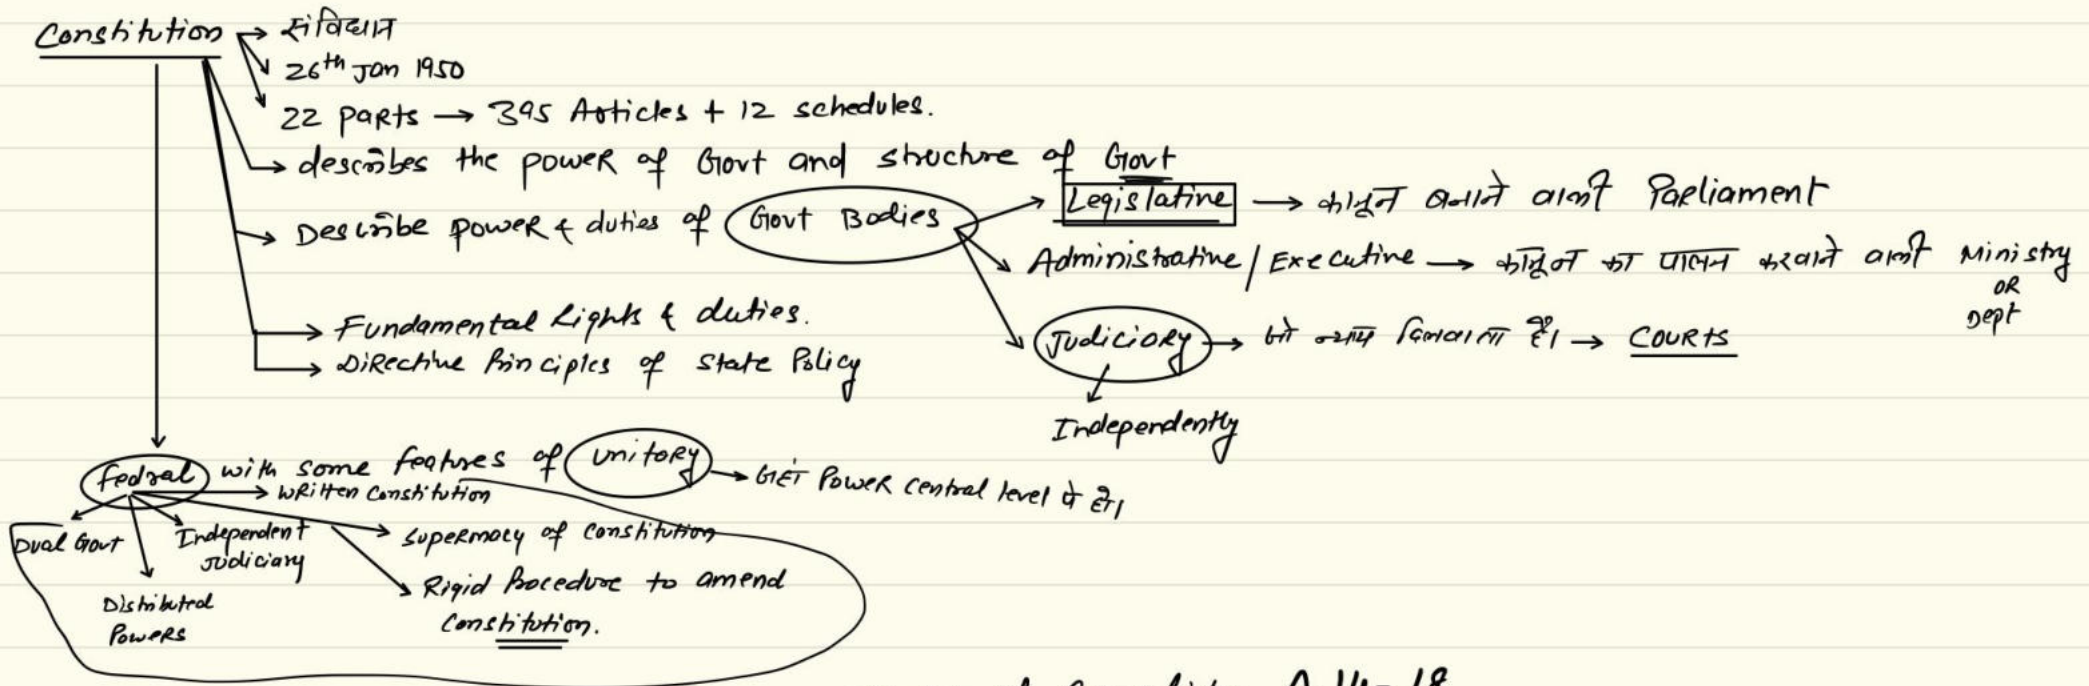 Constitution → संविधान
26th Jan 1950
22 Parts → 395 Articles + 12 schedules.
→ describes the power of Govt and structure of Govt
→ Describe power & duties of Govt Bodies
Legislative → कानून बनाने वाली Parliament
Administrative / Executive → कानून का पालन करवाने वाली Ministry
OR
Dept
Judiciary → जो न्याय दिलवाता है। → COURTS
Independently
→ Fundamental Rights & duties.
→ Directive Principles of State Policy
Fedral with some features of Unitory → Power central level पे है।
→ Written Constitution
Dual Govt
Independent
Judiciary
Supermacy of Constitution
Distributed
Powers
Rigid Procedure to amend
Constitution.